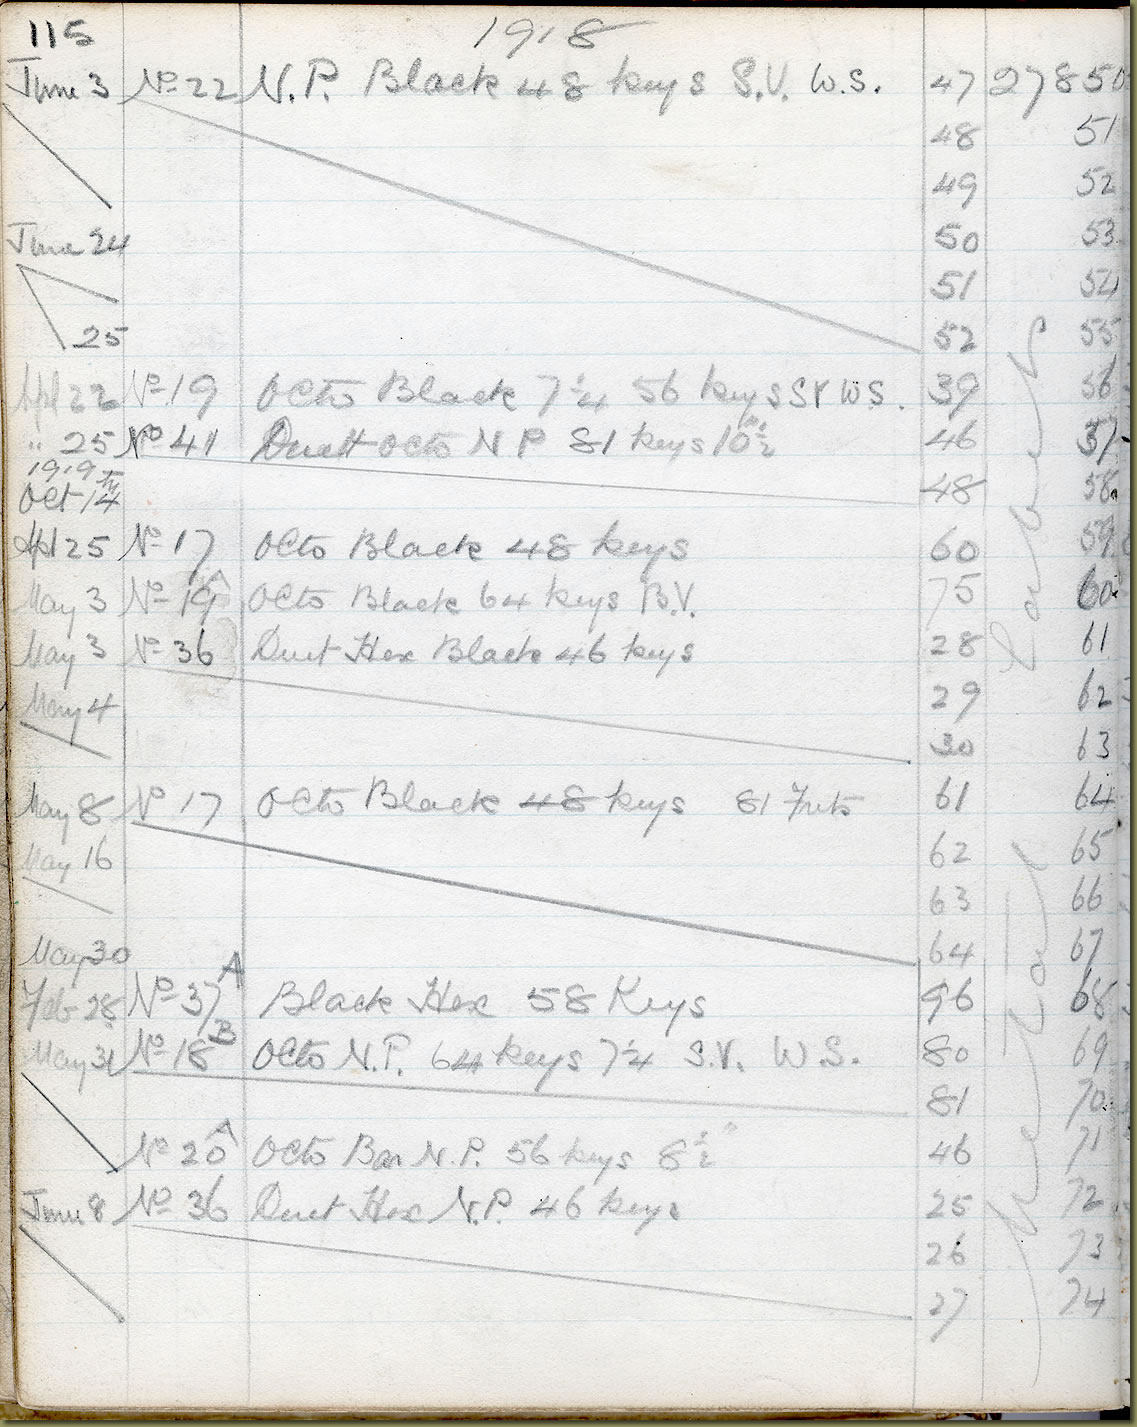 115 1918
June 3 No 22 N.P. Black 48 keys S.V. W.S. 47 27850
48 51
49 52
June 24 50 53
51 54
25 52 55
Apl 22 No 19 Octo Black 7¼ 56 keys SV W.S. 39 56
" 25 No 41 Duett Octo N P 81 keys 10½" 46 57
1919
Oct 14th 48 58
Apl 25 No 17 Octo Black 48 keys 60 59
May 3 No 19A Octo Black 64 keys B.V. 75 60
May 3 No 36 Duet Hex Black 46 keys 28 61
May 4 29 62
30 63
May 8 No 17 Octo Black 48 keys 81 Frets 61 64
May 16 62 65
63 66
May 30 64 67
Feb 28 No 37A Black Hex 58 Keys 96 68
May 31 No 18B Octo N.P. 64 keys 7¼ S.V. W.S. 80 69
81 70
No 20A Octo Bar N.P. 56 keys 8½" 46 71
June 8 No 36 Duet Hex N.P. 46 keys 25 72
26 73
27 74